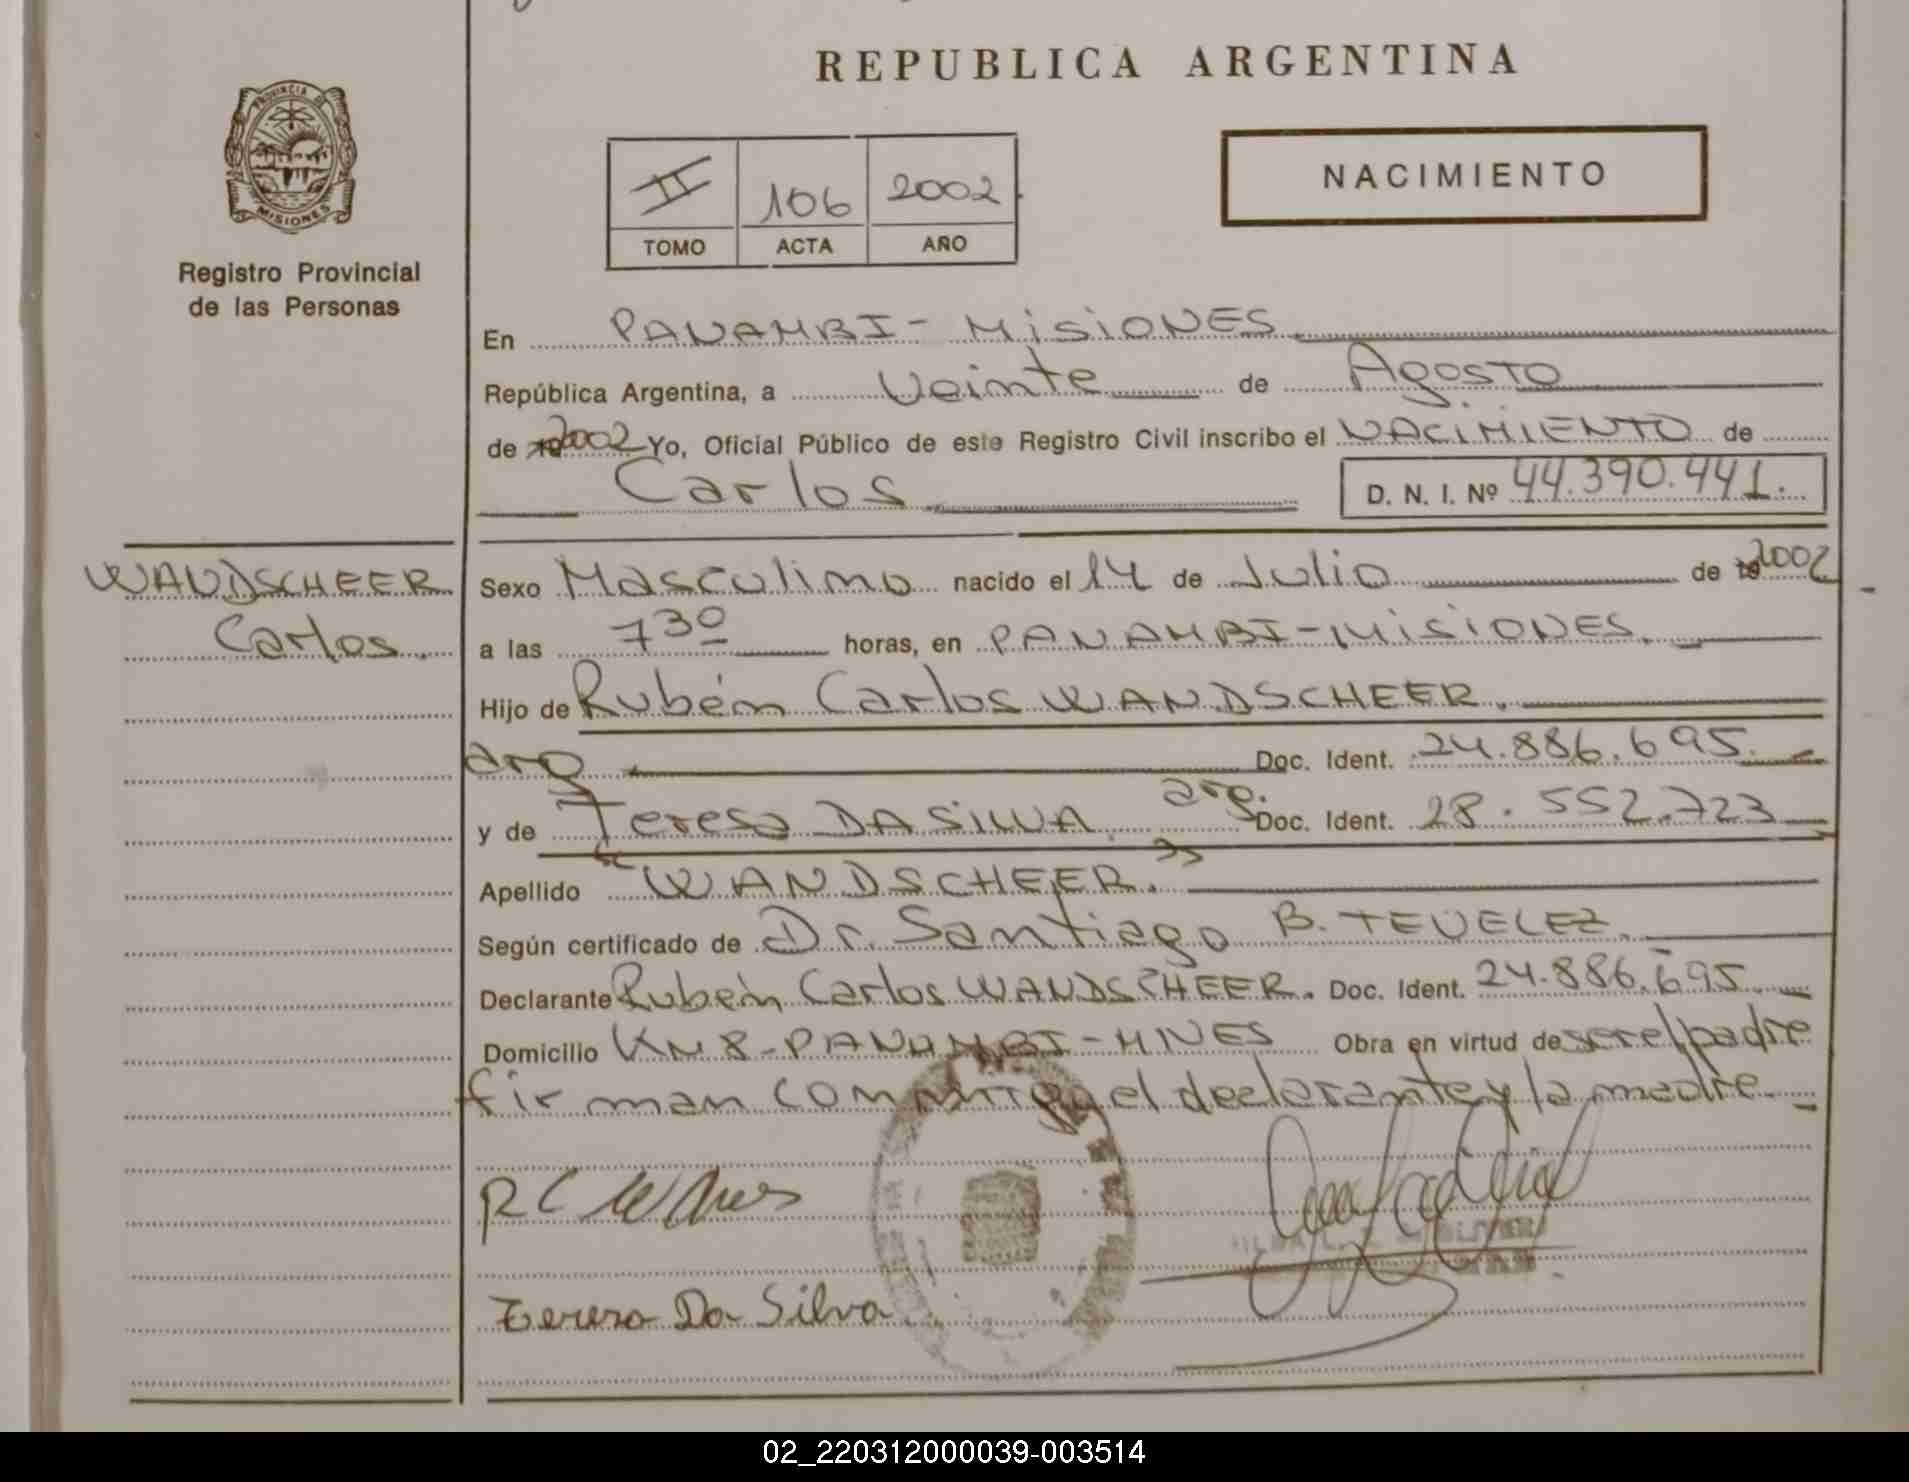 REPUBLICA ARGENTINA
PROVINCIA DE
MISIONES
Registro Provincial
de las Personas
II 106 2002
TOMO ACTA AÑO
NACIMIENTO
En PANAMBI - MISIONES
República Argentina, a Veinte de Agosto
de 2002 Yo, Oficial Público de este Registro Civil inscribo el NACIMIENTO de
Carlos D. N. I. Nº 44.390.441.
WANDSCHEER
Carlos.
Sexo Masculino nacido el 14 de Julio de 2002
a las 7 30 horas, en PANAMBI - MISIONES.
Hijo de Rubén Carlos WANDSCHEER.
arg Doc. Ident. 24.886.695
y de Teresa DA SILVA arg. Doc. Ident. 28.552.723
Apellido "WANDSCHEER."
Según certificado de Dr. Santiago B. TEVELEZ.
Declarante Rubén Carlos WANDSCHEER. Doc. Ident. 24.886.695
Domicilio KM 8 - PANAMBI - MNES Obra en virtud de ser el padre
firman conmigo el declarante y la madre.
Teresa Da Silva
02_220312000039-003514